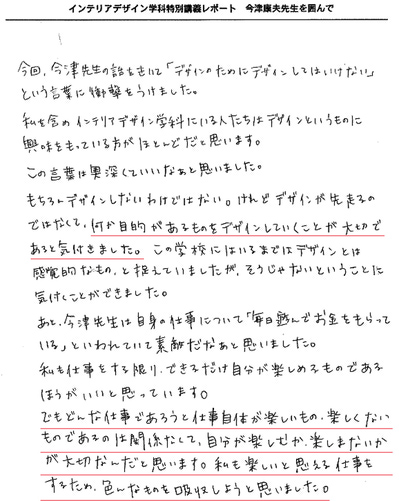 インテリアデザイン学科特別講義レポート　今津康夫先生を囲んで
今回、今津先生の話をきいて「デザインのためにデザインしてはいけない」
という言葉に衝撃をうけました。
私を含めインテリアデザイン学科にいる人たちはデザインというものに
興味をもっている方がほとんどだと思います。
この言葉は奥深くていいなぁと思いました。
もちろんデザインしないわけではない。けれどデザインが先走るの
ではなくて、何か目的があるものをデザインしていくことが大切で
あると気付きました。この学校にはいるまではデザインとは
感覚的なもの、と捉えていましたが、そうじゃないということに
気付くことができました。
あと、今津先生は自身の仕事について「毎日遊んでお金をもらって
いる」といわれていて素敵だなぁと思いました。
私も仕事をする限り、できるだけ自分が楽しめるものである
ほうがいいと思っています。
でもどんな仕事であろうと仕事自体が楽しいもの、楽しくない
ものであるのは関係なくて、自分が楽しむか、楽しまないか
が大切なんだと思います。私も楽しいと思える仕事を
するため、色んなものを吸収しようと思いました。